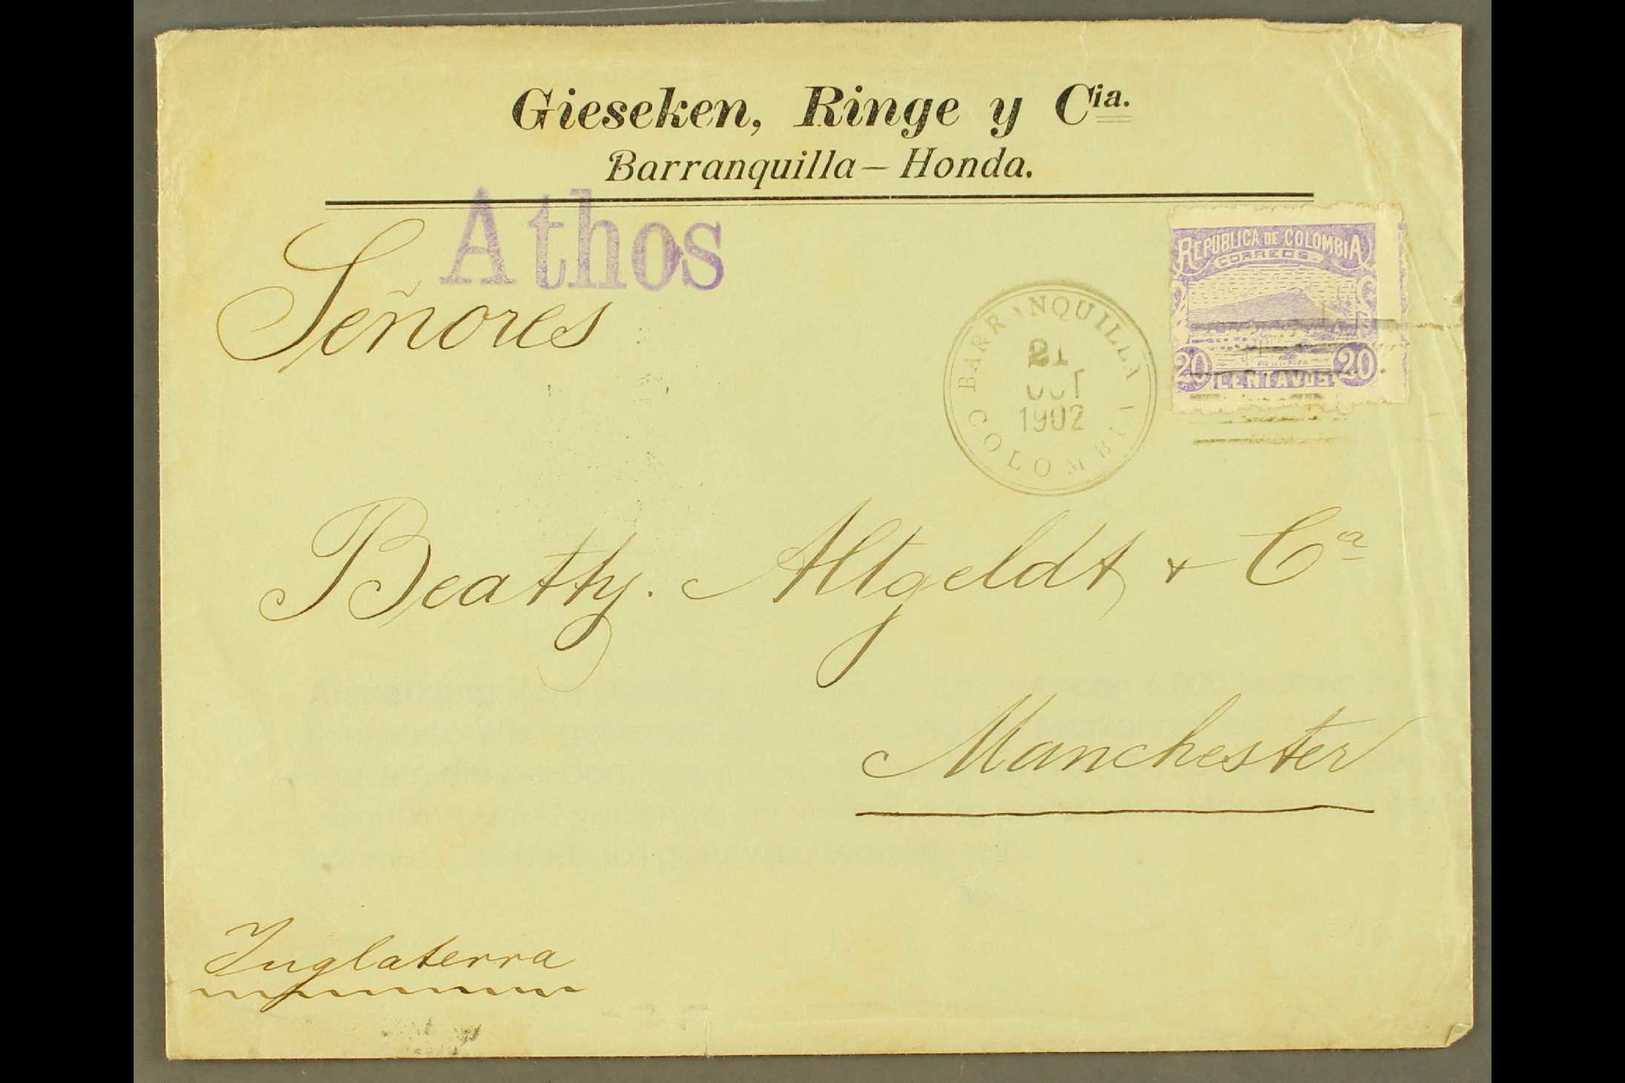 Gieseken, Ringe y Cia.
Barranquilla – Honda.
Athos
Señores
REPUBLICA DE COLOMBIA
CORREOS
20 CENTAVOS 20
BARRANQUILLA
21
OCT
1902
COLOMBIA
Beatty. Altgeldt & Ca
Manchester
Inglaterra